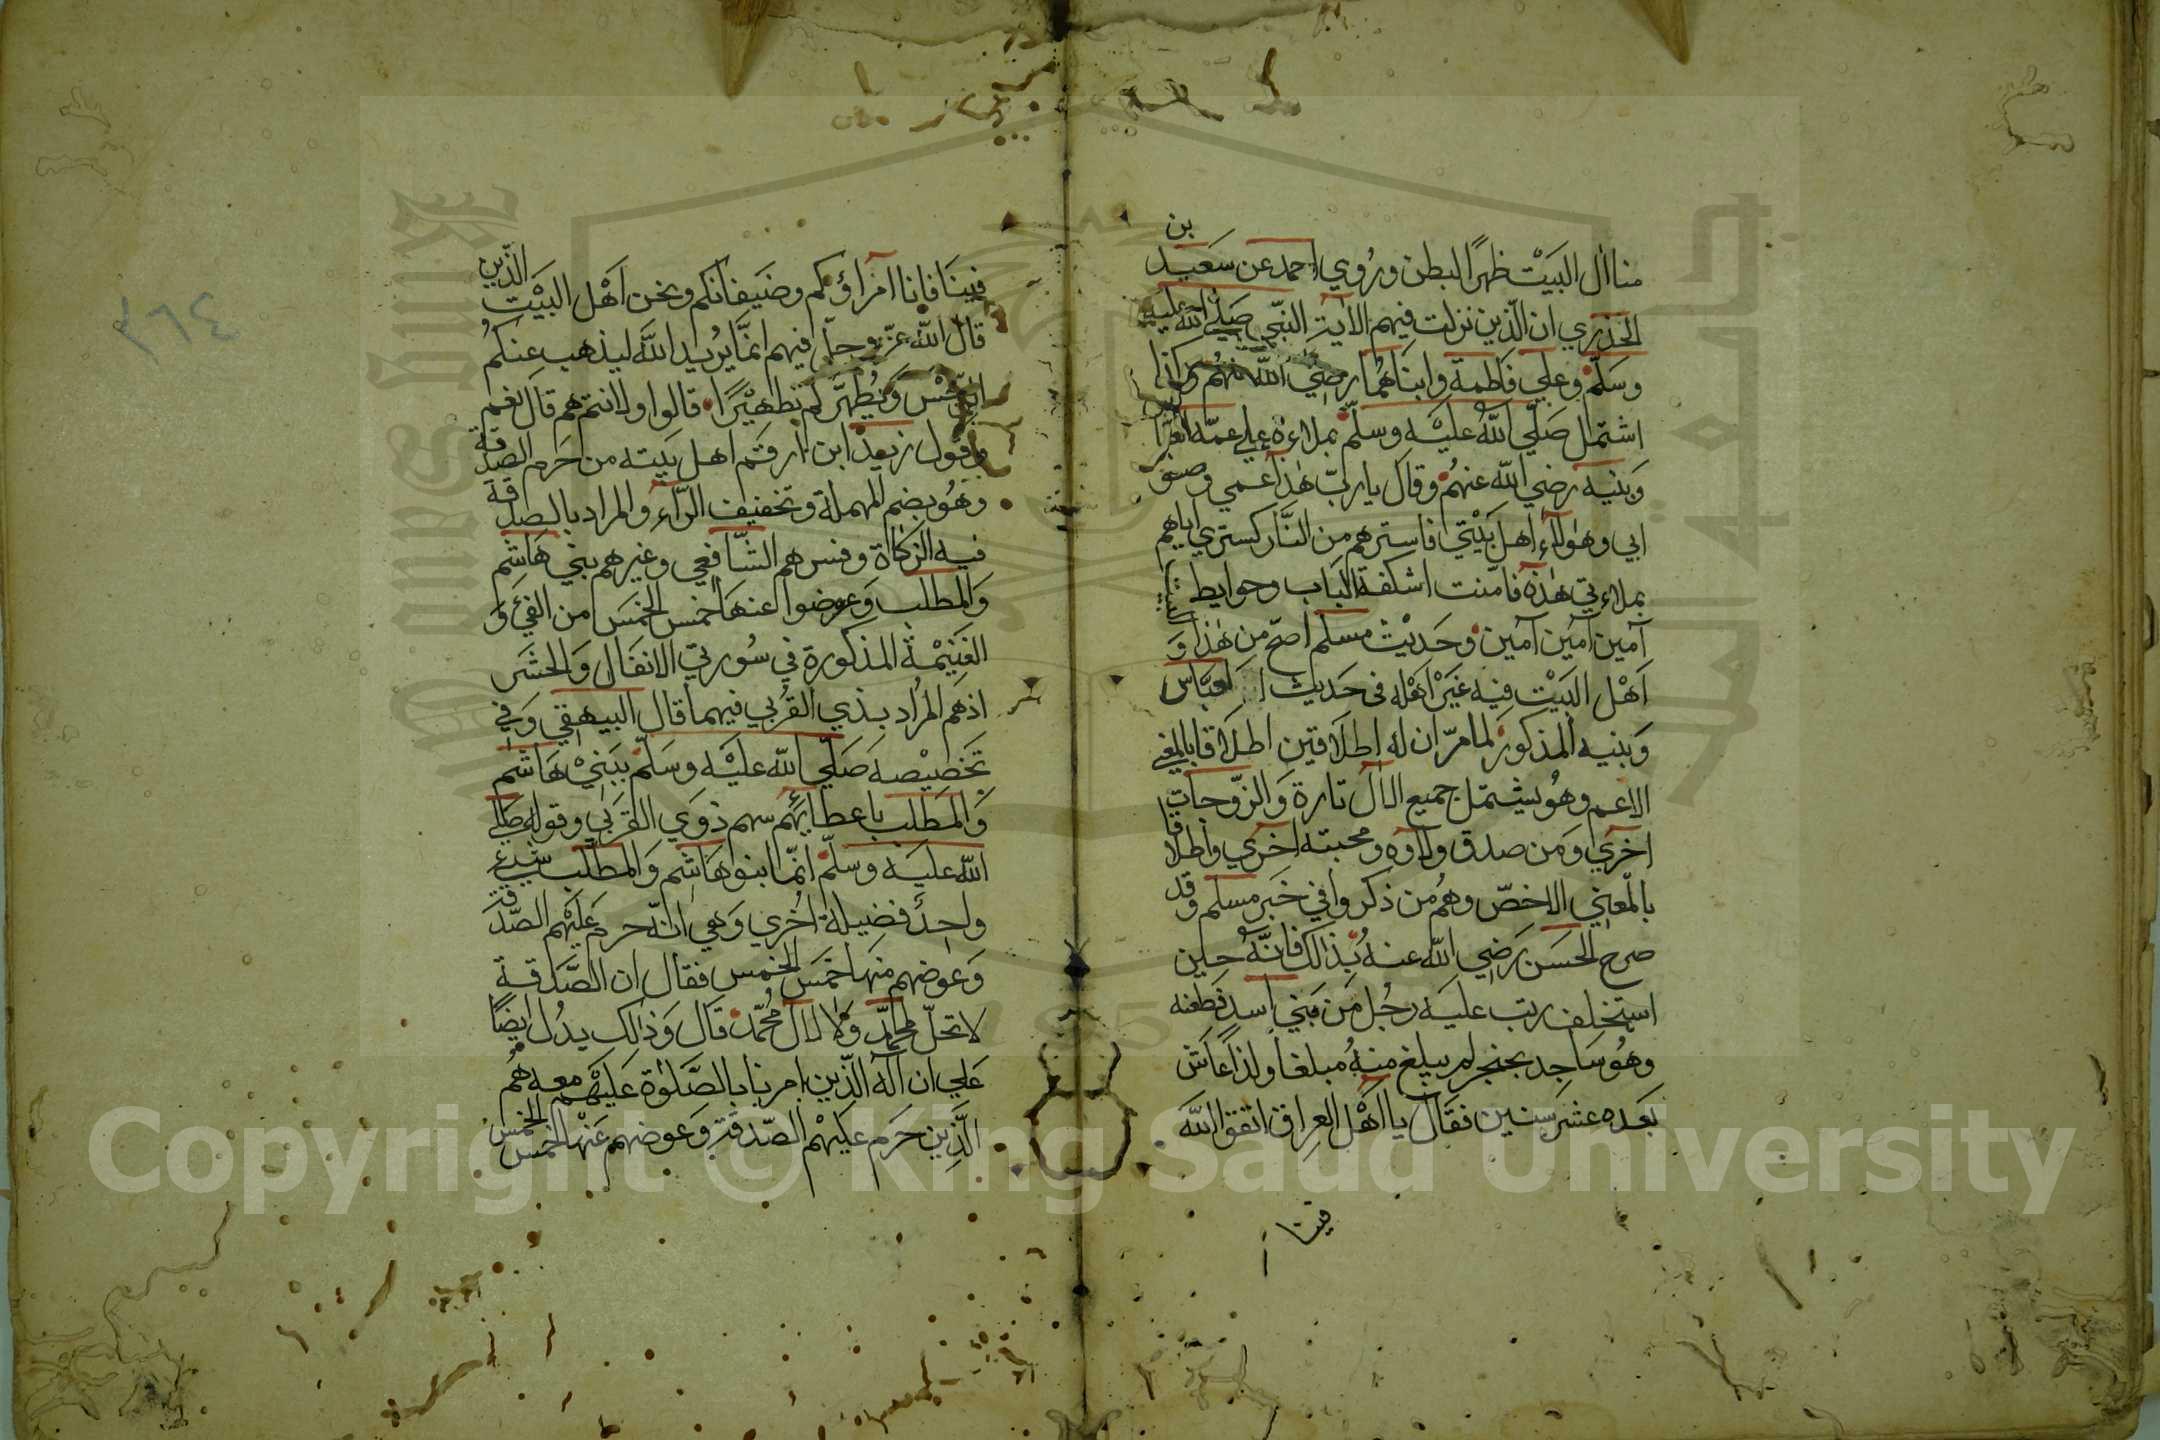 منا ال البَيْت ظهرًا لبطن ورُوي احمد عن سَعيد بن
الخذري ان الّذين نزلت فيهم الاٰية النّبي صَلّي الله عليه
وسَلّم وعلي فاطمة وابناهُما رضي الله عنهُم وكذا
اشتمل صَلّي اللهُ عليْه وسلّم بملاءة علي عمّه العبّاس
وَبنيه رضي الله عنهُم وقال ياربّ هٰذا عمي وصنو
ابي وهٰولاء اهل بَيْتي فاسترهم من النَّار كستري اياهم
بملاءتي هٰذه فامّنت اسْكفة الباب وحوايط البيت
آمين آمين آمين وحَديْث مسلم اصحّ من هٰذا وَ
اَهْل البَيْت فيه غَيْر اَهْله في حَديث العبّاس
وَبنيه المذكور لما مرّ ان له اطلاقتين اطلاقا بالمعني
الاعم وهُو يشتمل جميع الال تارة وَالزّوجات
اخرٰي وَمن صدق ولاؤه ومحبته اخرٰي واطلاقا
بالمعني الاخصّ وهُم من ذكروا في خَبر مسلم وقد
صرح الحسَن رَضي الله عنهُ بذٰلك فانّهُ حين
استخلف رتب عليَه رجُل مَن بَني اسد فطعنه
وهُو سَاجد بخنجر لم يبلغ منهُ مبلغا ولذا عَاش
بَعده عشر سنين فقَال يا اَهْل العِراق اتقوا اللهَ
فينا
فينَا فانا امرٰاؤكم وضَيفانكم ونحن اَهْل البَيْت الّذين
قال الله عزّ وجلّ فيهم انمَّا يرُيد اللهُ ليذهب عنكمُ
الرّجْسَ وَيُطهّركم تطهيْرًا قالوا ولانتم هم قال نعَم
وقول زيد ابن ارقم اهل بَيته من حَرم الصّدقة
وهُو بضم المهملة وتخفيف الرّاء والمراد بالصدقة
فيه الزكاة وفسرهم الشّافعي وغيرهم بَني هَاشم
وَالمطلب وَعوضوا عنهَا خمسَ الخمسَ من الفيْء وَ
الغَنيْمة المذكورة في سُورتي الانفَال وَالحشَر
اذهم المرُاد بذي القُربي فيهما قال البيهقي وَفي
تَخصيْصه صَلّي الله عليْه وسَلّم ببَنيْ هَاشم
وَالمطلب باعطائهُم سهم ذوَي القربي وقوله صَلّي
الله عليَه وسلّم انمّا بنوا هَاشم وَالمطلب شيء
واحدٌ فضيلة اُخري وَهي انّه حرم عَليْهم الصّدَقة
وَعوضهم منهَا خمسَ الخمس فقَال ان الصَّدقة
لا تحلّ لمحمّد وَلا لاٰل مُحمّد قال وَذٰلك يدُل ايضًا
علي ان آله الّذين امرنا بالصَّلوٰة عَليْهم معه هُم
الّذين حَرم عليهْم الصّدقة وَعوضهم عَنْها خمس الخمس
٣٦٤
King Saud University
1957
Copyright © King Saud University